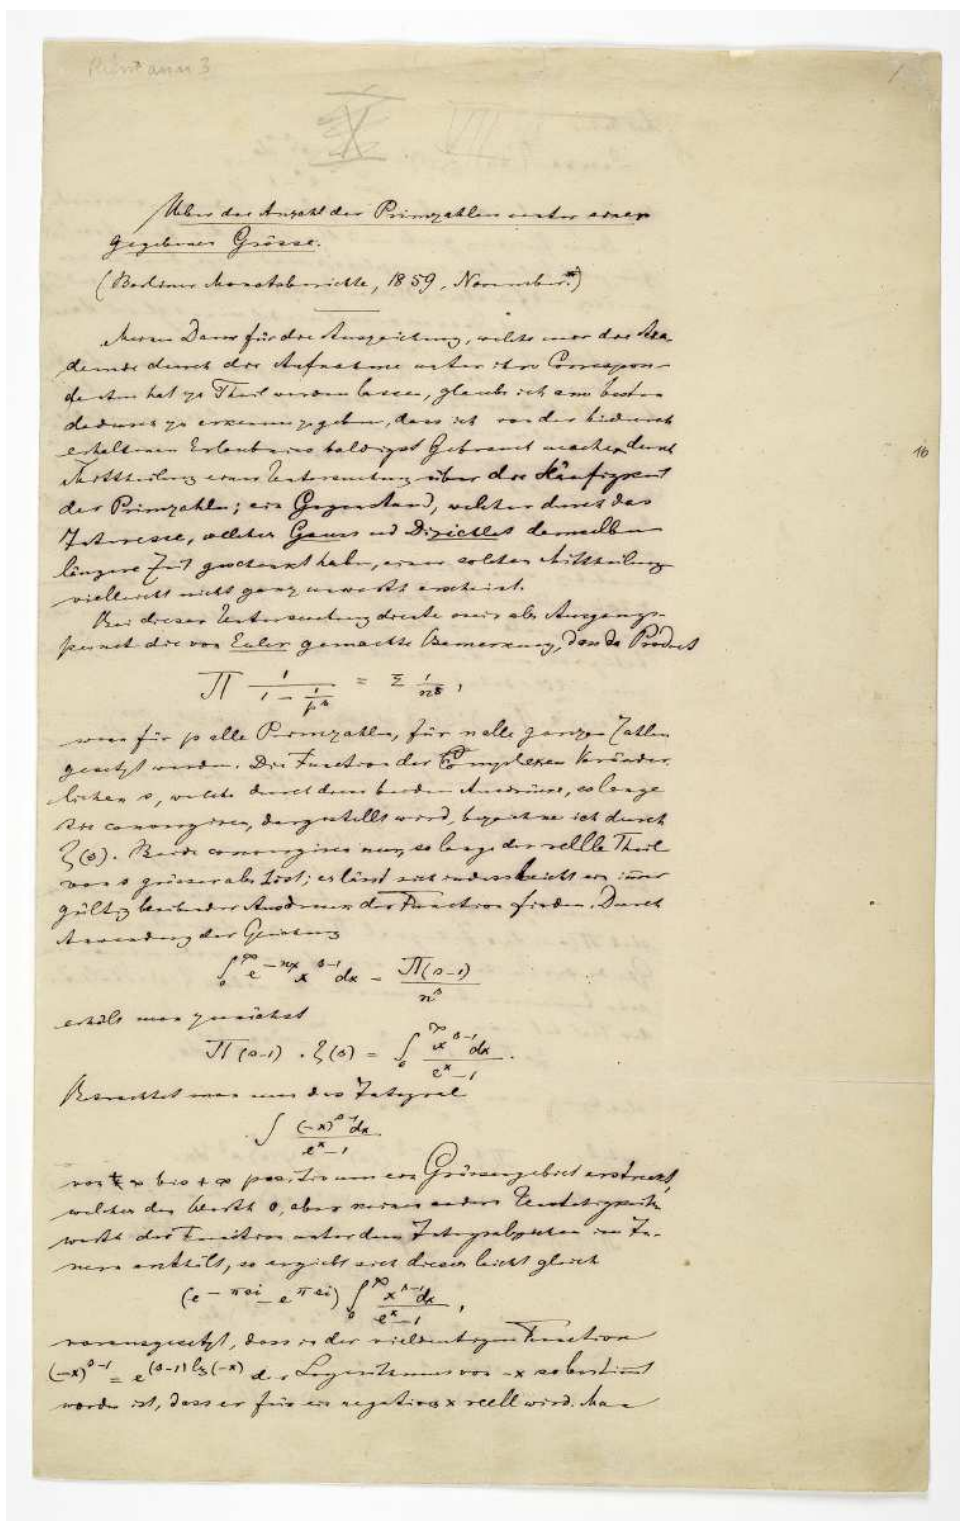 Riemann 3
1
X
VII
Ueber die Anzahl der Primzahlen unter einer
gegebenen Grösse.
(Berliner Monatsberichte, 1859, November.)
Meinen Dank für die Auszeichnung, welche mir die Aka-
demie durch die Aufnahme unter ihre Correspon-
denten hat zu Theil werden lassen, glaube ich am besten
dadurch zu erkennen zu geben, dass ich von der hiedurch
erhaltenen Erlaubniss baldigst Gebrauch mache durch
Mittheilung einer Untersuchung über die Häufigkeit
der Primzahlen; ein Gegenstand, welcher durch das
16
Interesse, welches Gauss und Dirichlet demselben
längere Zeit geschenkt haben, einer solchen Mittheilung
vielleicht nicht ganz unwerth erscheint.
Bei dieser Untersuchung diente mir als Ausgangs-
punct die von Euler gemachte Bemerkung, dass das Product
∏ 1/(1 − 1/p^s) = Σ 1/n^s,
wenn für p alle Primzahlen, für n alle ganzen Zahlen
gesetzt werden. Die Function der complexen Veränder-
lichen s, welche durch diese beiden Ausdrücke, so lange
sie convergiren, dargestellt wird, bezeichne ich durch
ζ(s). Beide convergiren nur, so lange der reelle Theil
von s grösser als 1 ist; es lässt sich indess leicht ein immer
gültig bleibender Ausdruck der Function finden. Durch
Anwendung der Gleichung
∫_0^∞ e^{−nx} x^{s−1} dx = ∏(s−1)/n^s
erhält man zunächst
∏(s−1) . ζ(s) = ∫_0^∞ x^{s−1}dx/(e^x−1).
Betrachtet man nun das Integral
∫ (−x)^{s−1}dx/(e^x−1)
von +∞ bis +∞ positiv um ein Grössengebiet erstreckt,
welches den Werth 0, aber keinen andern Unstetigkeits-
werth der Function unter dem Integralzeichen im In-
nern enthält, so ergiebt sich dieses leicht gleich
(e^{−πsi} − e^{πsi}) ∫_0^∞ x^{s−1}dx/(e^x−1),
vorausgesetzt, dass in der vieldeutigen Function
(−x)^{s−1} = e^{(s−1)lg(−x)} der Logarithmus von −x so bestimmt
worden ist, dass er für ein negatives x reell wird. Man